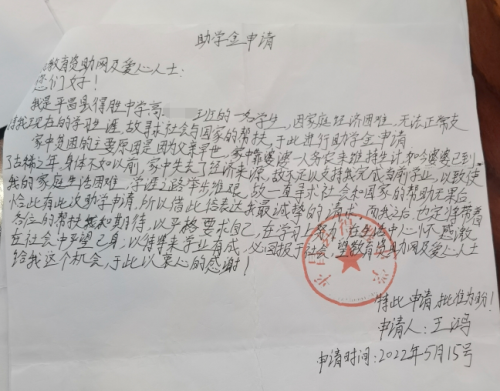 助学金申请
教育资助网及爱心人士:
您们好!
我是平昌县得胜中学高 班的一名学生,因家庭经济困难,无法正常
我现在的学业,故寻求社会与国家的帮扶,于此进行助学金申请
家中贫困的主要原因是因为父亲早世,家中靠婆婆一人务农来维持生计,如今婆婆已到
了古稀之年,身体不如以前,家中失去了经济来源,故不足以支持我完成当前学业,以致使
我的家庭生活困难,学业之路举步维艰,故一直寻求社会和国家的帮助无果后
恰此有此次助学申请,所以借此信表达我最诚挚的 而我之后,也定当带着
您们的帮扶和期待,以严格要求自己,在学习上努力,在生活中心怀感激
在社会中予望己身,以待来年学业有成,必回报于社会,望教育资助网及爱心人士
给我这个机会,于此以衷心的感谢!
特此申请,批准为盼!
申请人:王鸿
申请时间:2022年5月15号